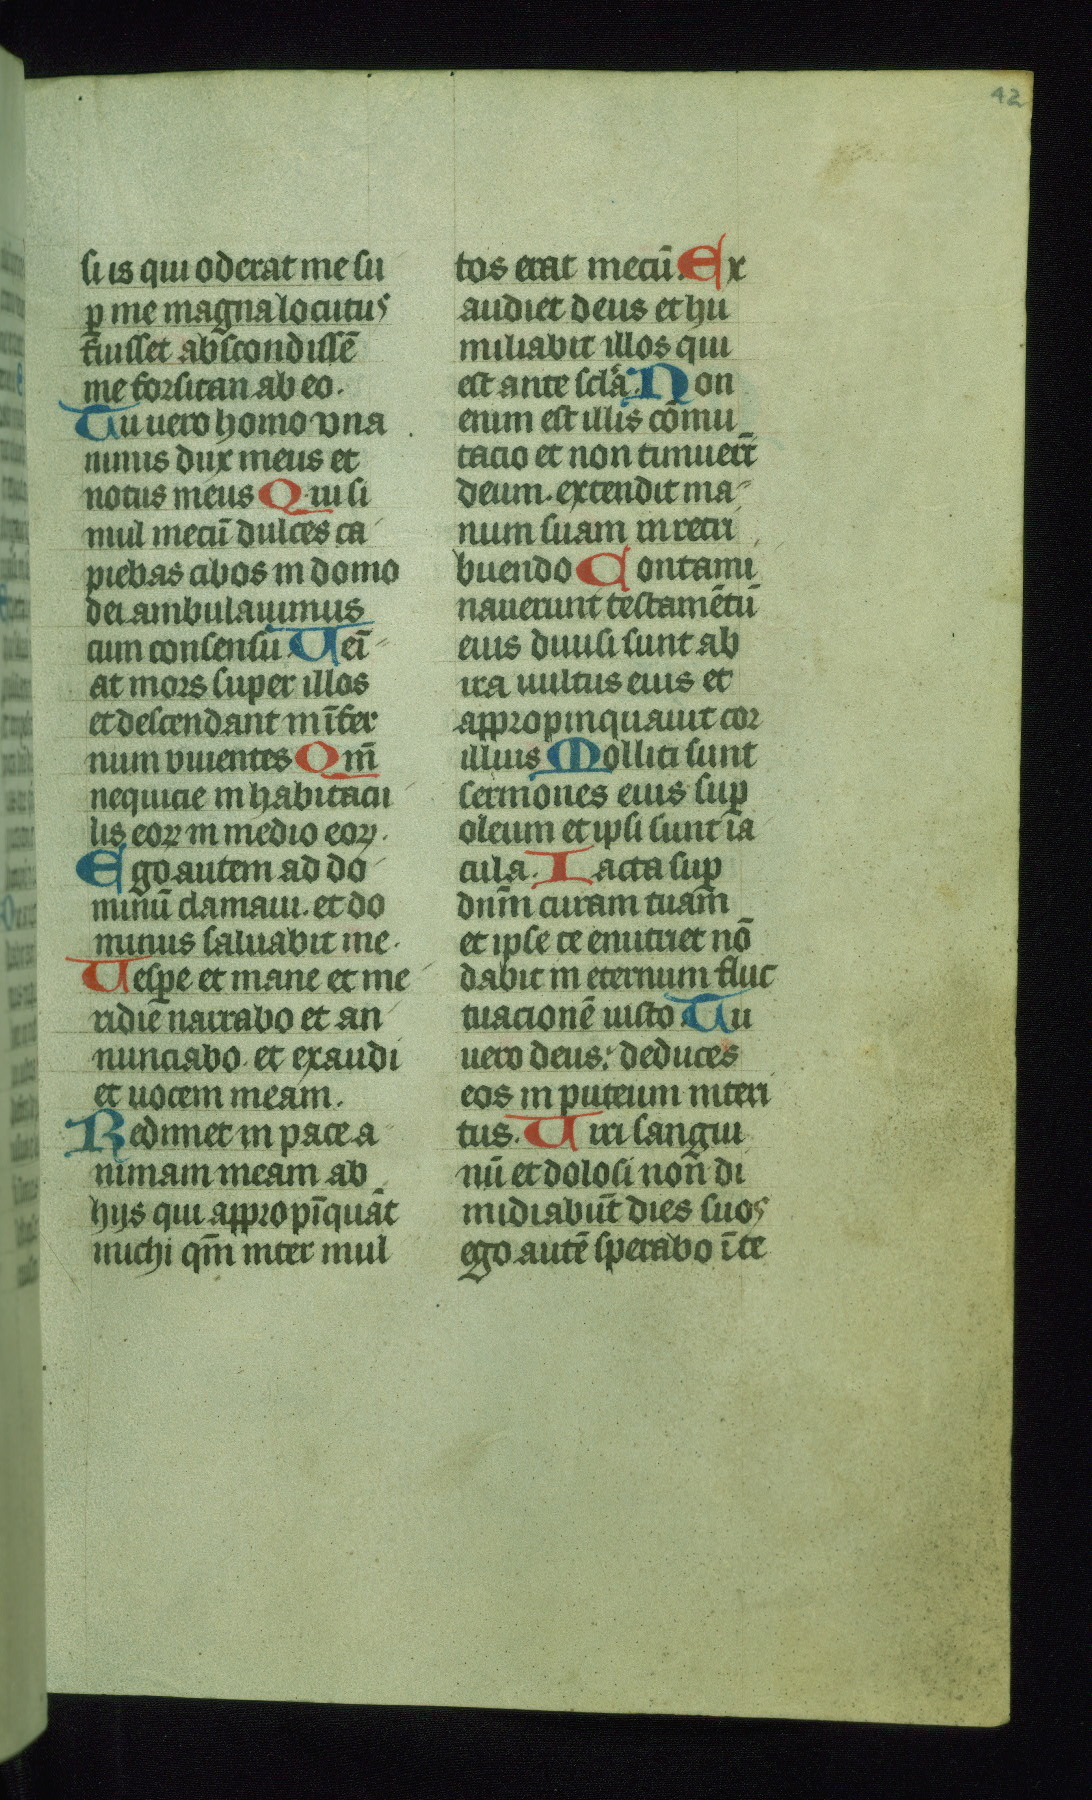 42
si is qui oderat me su
ꝑ me magna locutus
fuisset abscondissē
me forsitan ab eo.
Tu vero homo vna
nimis dux meus et
notus meus Qui si
mul mecū dulces ca
piebas cibos in domo
dei ambulauimus
cum consensu. Veī
at mors super illos
et descendant in īfer
num viuentes Qm̄
nequicie in habitacu
lis eoꝝ in medio eoꝝ.
Ego autem ad do
minū clamaui. et do
minus saluabit me.
Vesꝑe et mane et me
ridiē narrabo et an
nunciabo. et exaudi
et uocem meam.
Redimet in pace a
nimam meam ab
hijs qui appropīquāt
michi qm̄ inter mul
tos erat mecū. Ex
audiet deus et hu
miliabit illos qui
est ante scl̄a. Non
enim est illis cōmu
tacio et non timuerūt
deum. extendit ma
num suam in retri
buendo Contami
nauerunt testamētū
eius diuisi sunt ab
ira uultus eius et
appropinquauit cor
illius Molliti sunt
sermones eius suꝑ
oleum et ipsi sunt ia
cula. Iacta suꝑ
dnm̄ curam tuam
et ipse te enutriet nō
dabit in eternum fluc
tuacionē iusto Tu
uero deus: deduces
eos in puteum interi
tus. Viri sangui
nū et dolosi non di
midiabūt dies suos
ego autē sperabo ī te